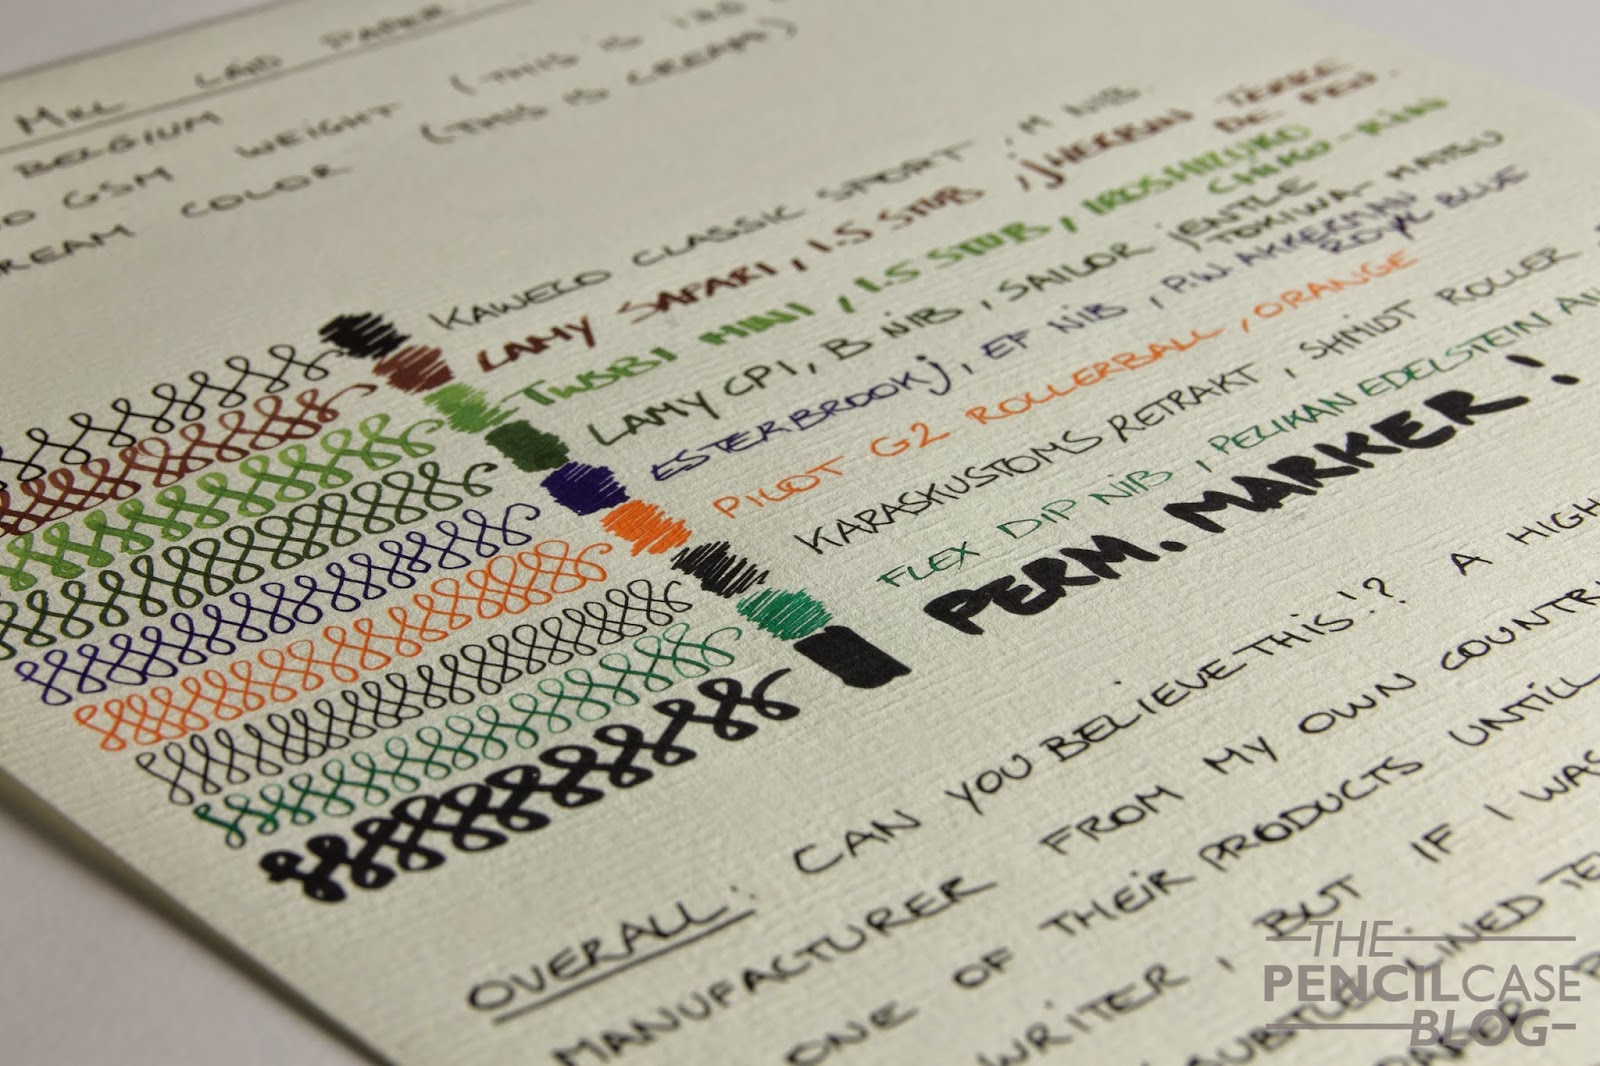 MILL LAID PAPER
BELGIUM
GSM WEIGHT (THIS IS 120
CREAM COLOR (THIS IS CREAM)
KAWECO CLASSIC SPORT, M NIB.
LAMY SAFARI, 1.5 STUB, J HERBIN TERRE DE FEU.
TWSBI MINI, 1.5 STUB, IROSHIZUKO CHIKU-RIN
LAMY CP1, B NIB, SAILOR JENTLE TOKIWA-MATSU
ESTERBROOK J, EF NIB, P.W. AKKERMAN ROYAL BLUE
PILOT G2 ROLLERBALL, ORANGE
KARASKUSTOMS RETRAKT, SHMIDT ROLLER
FLEX DIP NIB, PELIKAN EDELSTEIN
PERM. MARKER!
OVERALL: CAN YOU BELIEVE THIS!? A HIGH
MANUFACTURER FROM MY OWN COUNTR
ONE OF THEIR PRODUCTS UNTILL
WRITER, BUT IF I WAS
SUBTLE LINED TE
PAPER
THE
PENCILCASE
BLOG